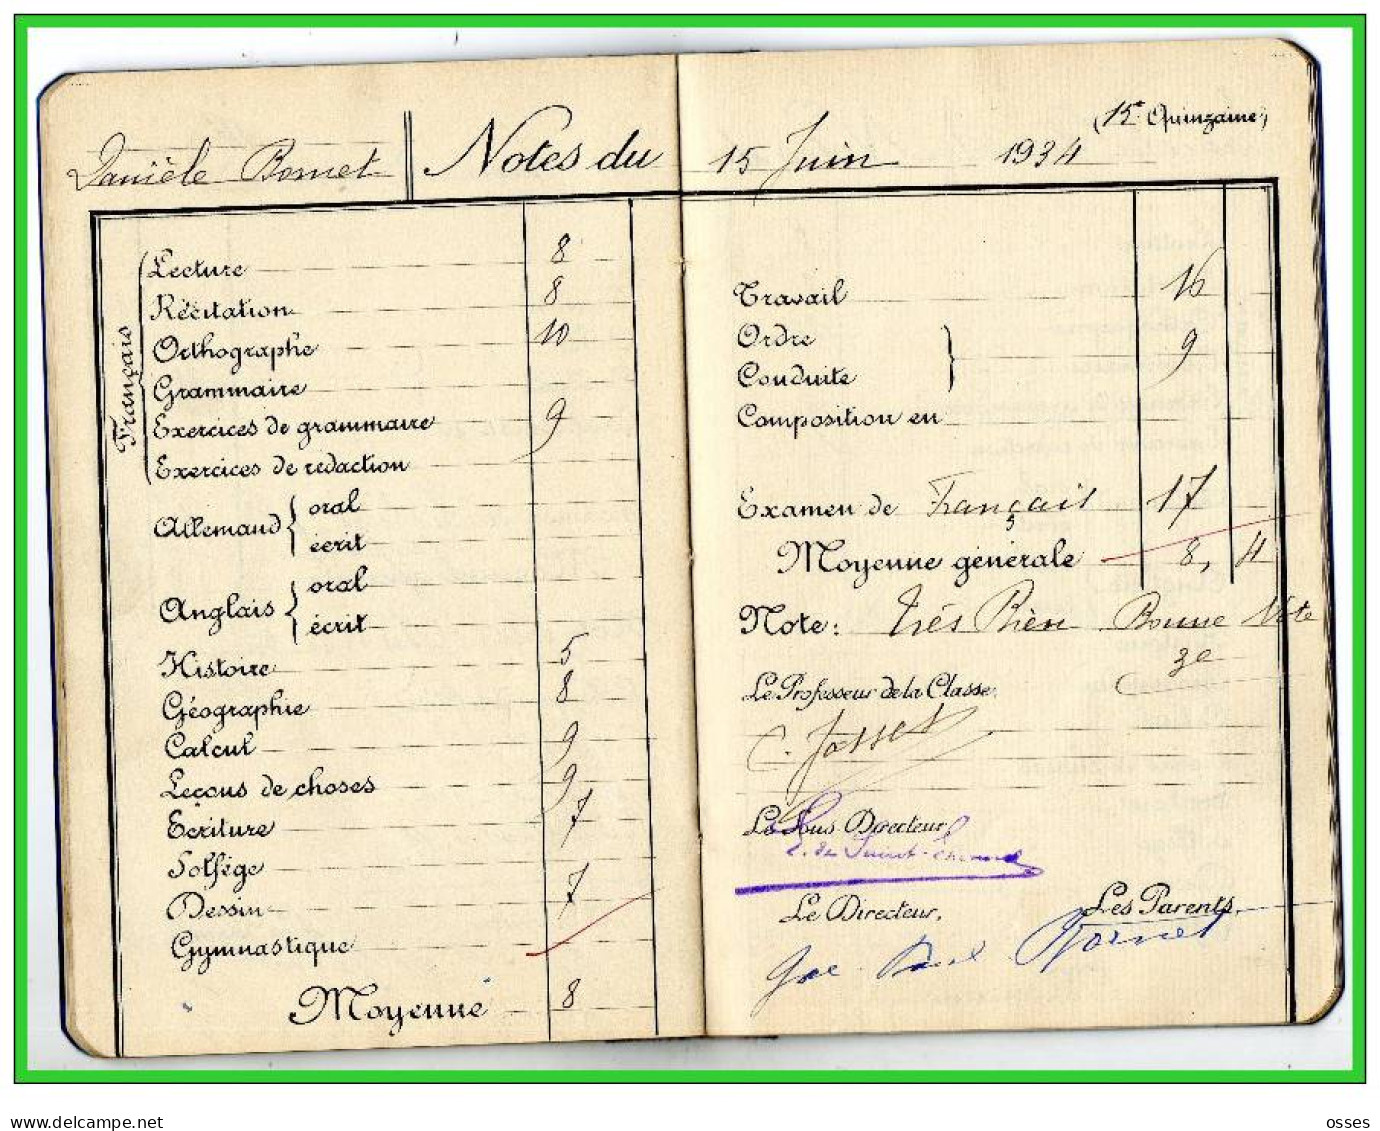 Danièle Bornet Notes du
Français
Lecture 8
Récitation 8
Orthographe 10
Grammaire
Exercices de grammaire 9
Exercices de rédaction
Allemand { oral
écrit
Anglais { oral
écrit
Histoire 5
Géographie 8
Calcul 9
Leçons de choses 9
Ecriture 7
Solfège
Dessin 7
Gymnastique
Moyenne 8
(15e Quinzaine)
15 Juin 1934
Travail 16
Ordre }
Conduite } 9
Composition en
Examen de Français 17
Moyenne générale 8, 4
Note: Très Bien Bonne Note
3e
Le Professeur de la Classe,
C. Josset
Le Sous Directeur
Le Directeur, Les Parents,
Bornet
delcampe.net osses